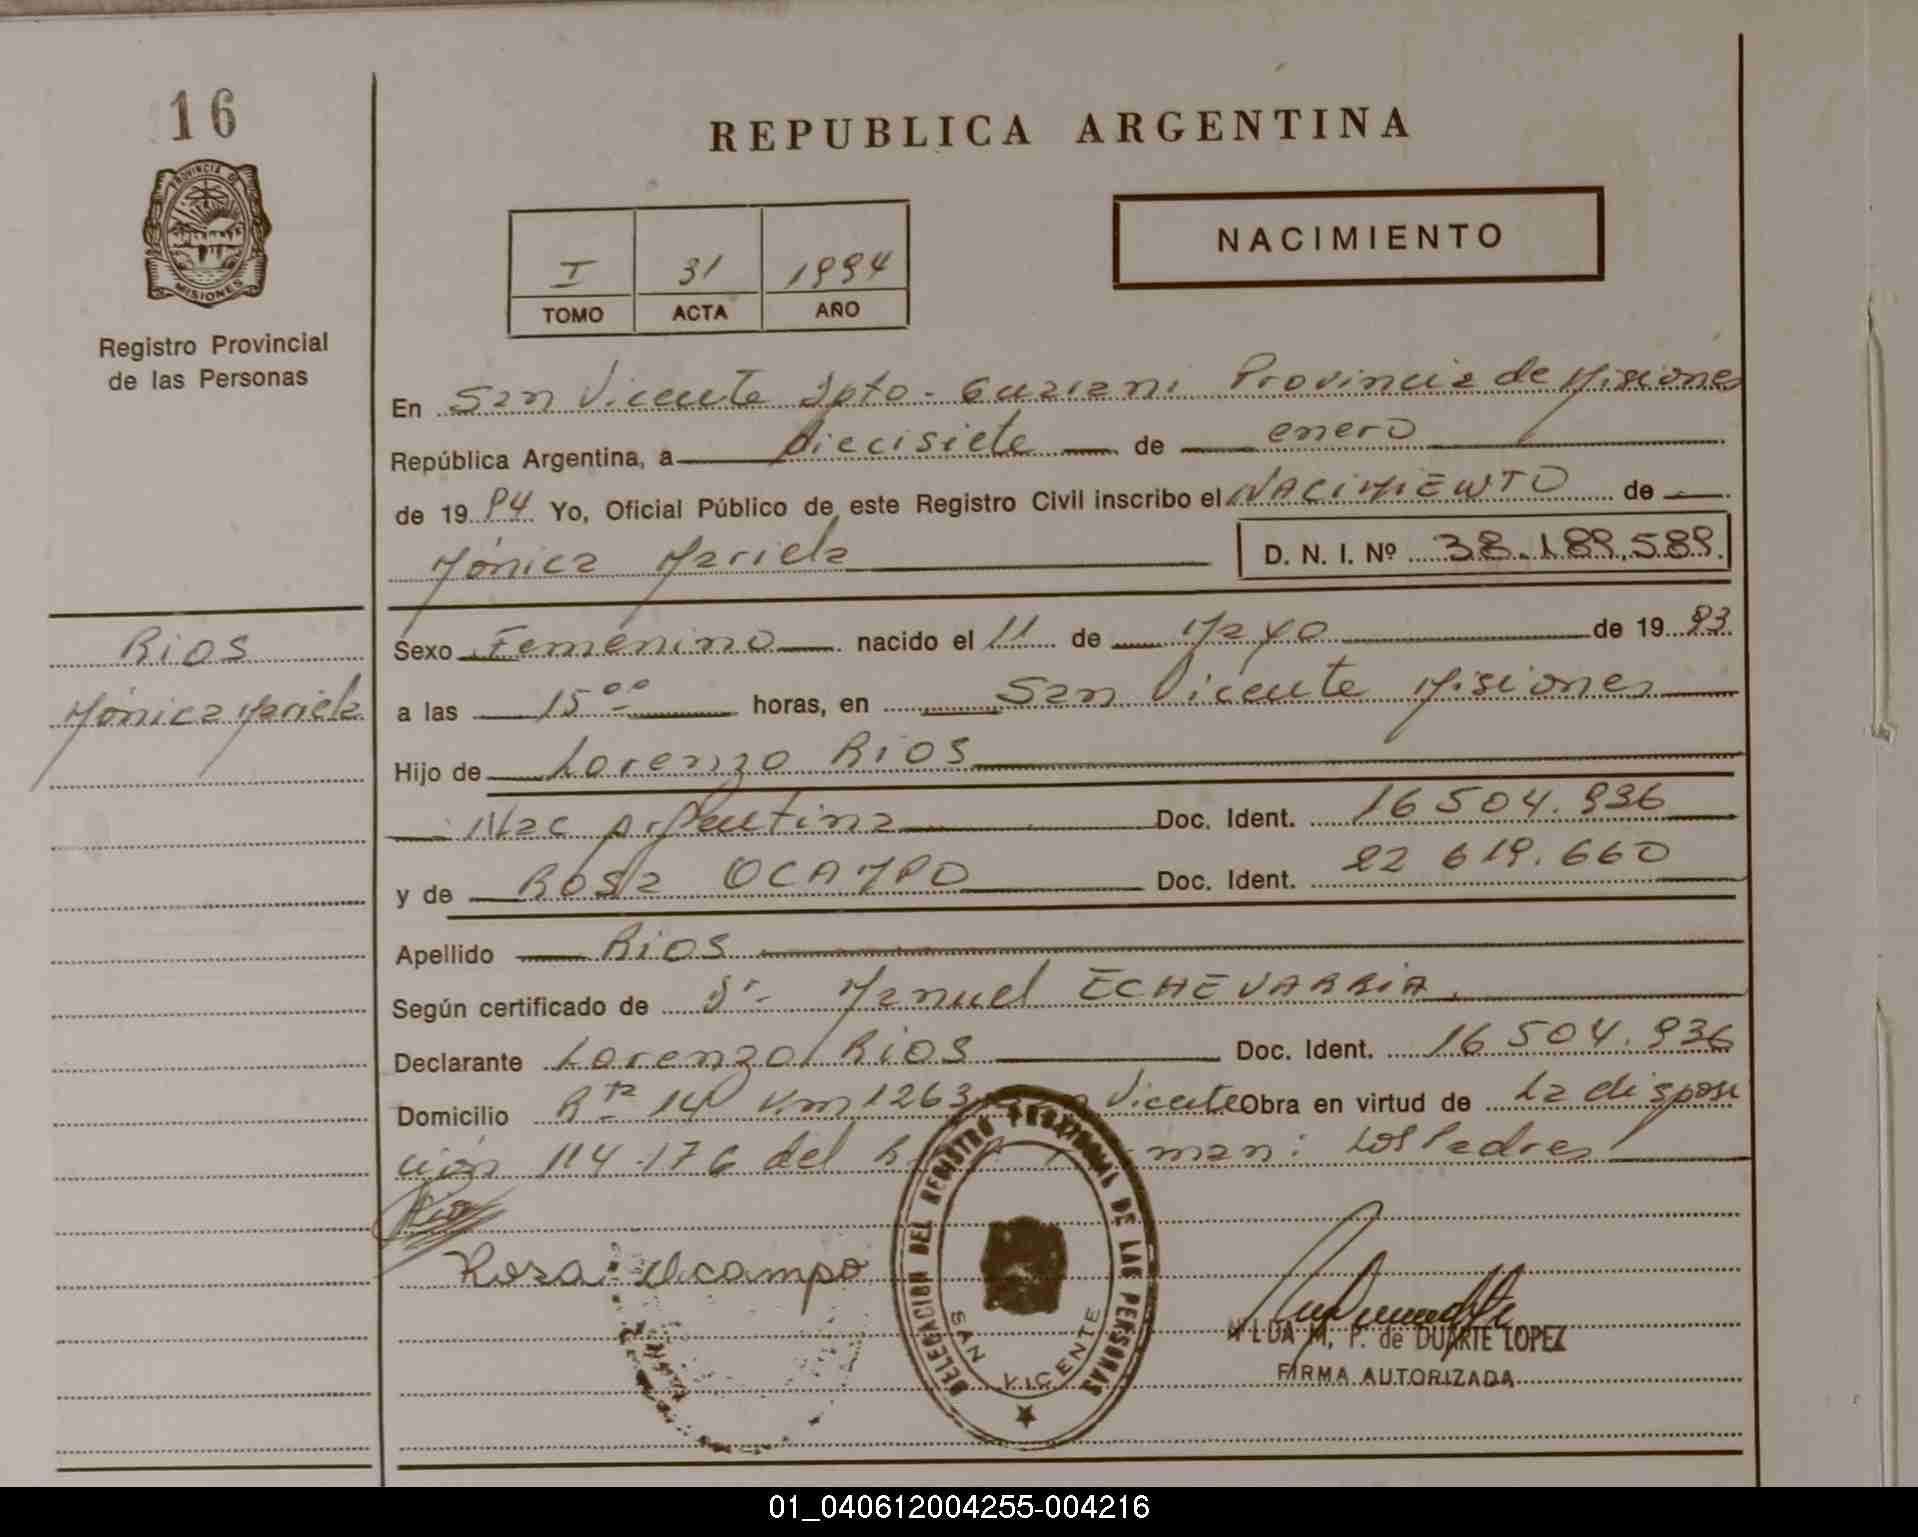 16
REPUBLICA ARGENTINA
PROVINCIA DE
MISIONES
Registro Provincial
de las Personas
I 31 1994
TOMO ACTA AÑO
NACIMIENTO
En San Vicente Dpto. Guarani Provincia de Misiones
República Argentina, a diecisiete de enero
de 19 94 Yo, Oficial Público de este Registro Civil inscribo el NACIMIENTO de
Mónica Mariela
D. N. I. Nº 38.189.589.
RIOS
Mónica Mariela
Sexo Femenino nacido el 11 de Mayo de 19 93
a las 15 00 horas, en San Vicente Misiones
Hijo de Lorenzo RIOS
Nac Argentina Doc. Ident. 16 504.936
y de Rosa OCAMPO Doc. Ident. 22 619.660
Apellido RIOS
Según certificado de Dr. Manuel ECHEVARRIA
Declarante Lorenzo RIOS Doc. Ident. 16 504.936
Domicilio Rta 14 Km 1263 Vicente Obra en virtud de La disposi
ción 114-176 del man: Los Padres
Rosa Ocampo
DELEGACION DEL REGISTRO PROVINCIAL DE LAS PERSONAS
SAN VICENTE
NILDA M. P. de DUARTE LOPEZ
FIRMA AUTORIZADA
01_040612004255-004216